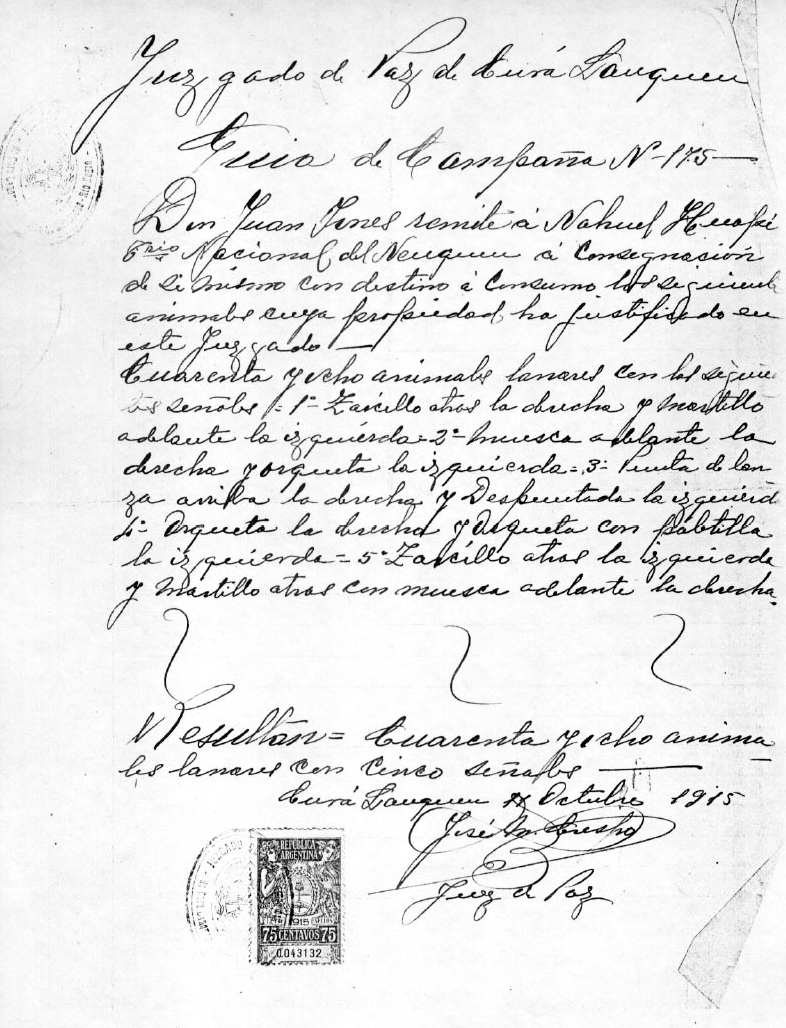 Juzgado de Paz de Curá Lauquen
Guia de Campaña Nº 175
Don Juan Jones remite á Nahuel Huapi
Trio Nacional del Neuquen á consegnasión
de si mismo con destino á consumo los siguiente
animales cuya propiedad ha justificado en
este Juzgado
Cuarenta y ocho animales lanares con los siguien
tes señales = 1º Zarcillo atras la derecha y martillo
adelante la izquierda = 2º muesca adelante la
derecha y orqueta la izquierda = 3º Punta de lan
za arriba la derecha y Despuntada la izquierd
4º Orqueta la derecha y orqueta con paletilla
la izquierda = 5º Zarcillo atras la izquierda
y Martillo atras con muesca adelante la derecha.
Resultan = Cuarenta y ocho anima
les lanares con cinco señales
Curá Lauquen Octubre 1915
José M. Crespo
Juez de Paz
REPUBLICA
ARGENTINA
1915
75 CENTAVOS 75
0.043132